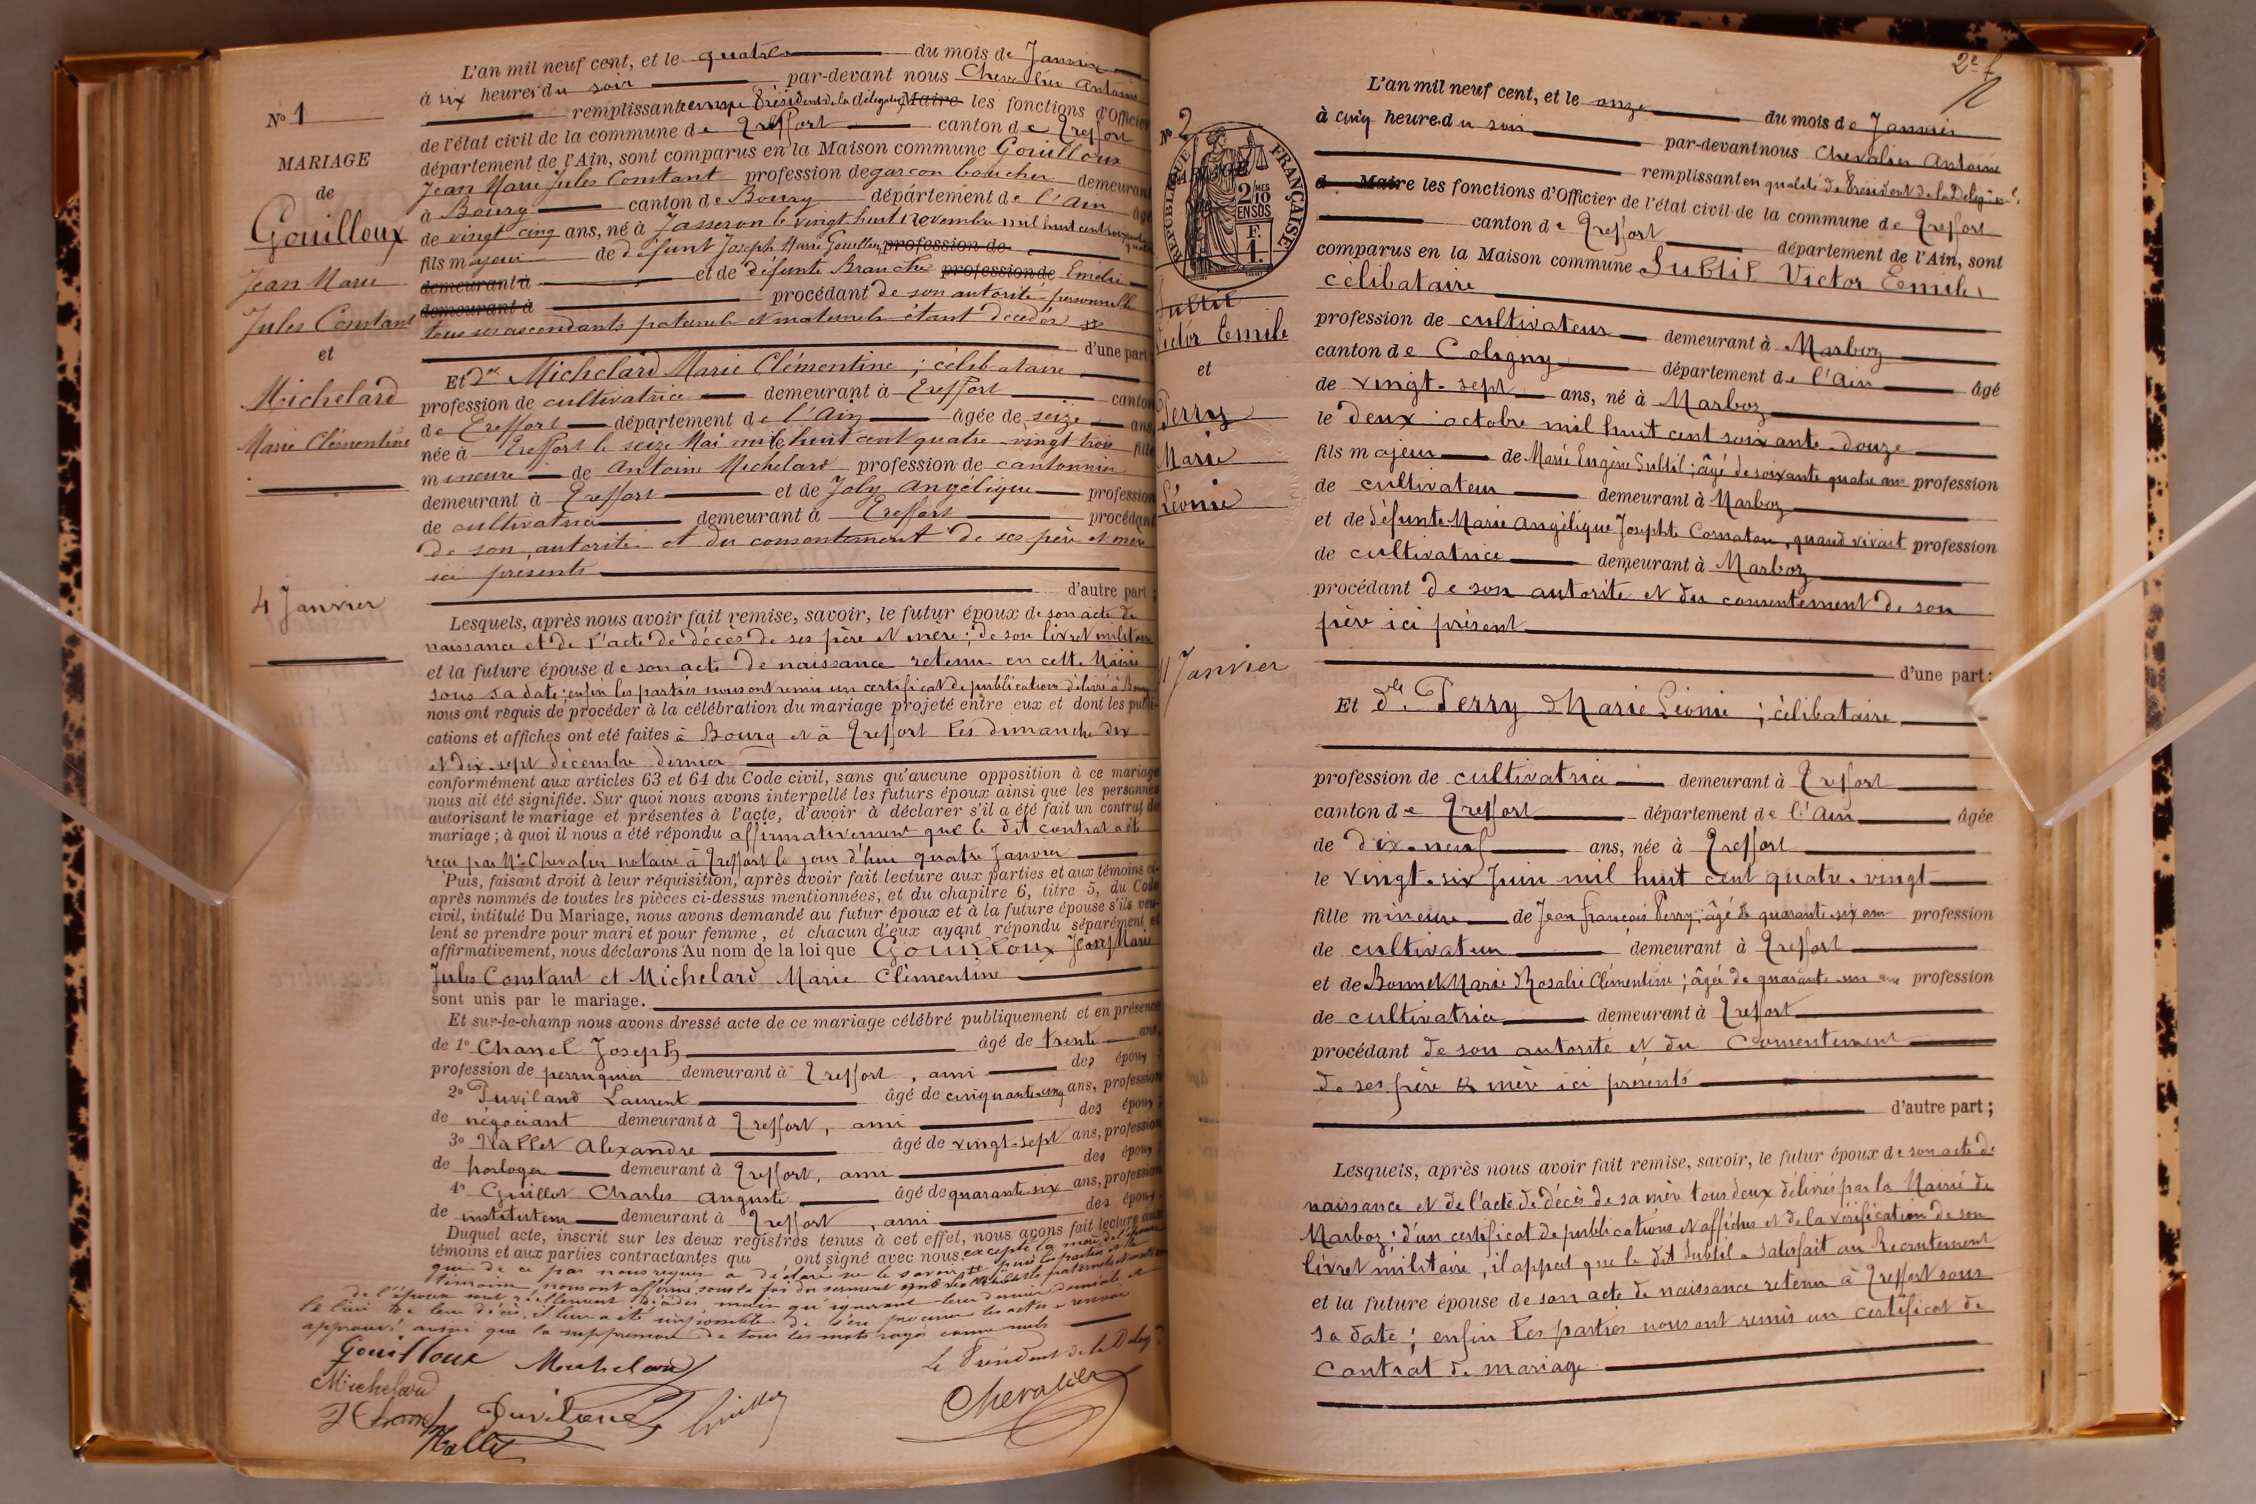 N° 1
MARIAGE
de
Gouilloux
Jean Marie
Jules Constant
et
Michelard
Marie Clémentine
4 Janvier
L'an mil neuf cent, et le quatre du mois de Janvier
à six heures du soir par-devant nous Chevalier Antoine
remplissant comme Président de la délégation Maire les fonctions d'Officier
de l'état civil de la commune de Treffort canton de Treffort
département de l'Ain, sont comparus en la Maison commune Gouilloux
Jean Marie Jules Constant profession de garçon boucher demeurant
à Bourg canton de Bourg département de l'Ain âgé
de vingt cinq ans, né à Jasseron le vingt huit novembre mil huit cent soixante quatorze
fils majeur de défunt Joseph Marie Gouilloux, profession de
demeurant à et de défunte Branche profession de Emélie
demeurant à procédant de son autorité personnelle
tous ses ascendants paternels et maternels étant décédés
d'une part
Et dlle Michelard Marie Clémentine ; célibataire
profession de cultivatrice demeurant à Treffort canton
de Treffort département de l'Ain âgée de seize ans
née à Treffort le seize Mai mil huit cent quatre-vingt trois fille
mineure de Antoine Michelard profession de cantonnier
demeurant à Treffort et de Joly Angélique profession
de cultivatrice demeurant à Treffort procédant
de son autorité et du consentement de ses père et mère
ici présents
d'autre part ;
Lesquels, après nous avoir fait remise, savoir, le futur époux de son acte de
naissance et de l'acte de décès de ses père et mère ; de son livret militaire
et la future épouse de son acte de naissance retenu en cette Mairie
sous sa date ; enfin les parties nous ont remis un certificat de publications délivré à Bourg
nous ont requis de procéder à la célébration du mariage projeté entre eux et dont les publi-
cations et affiches ont été faites à Bourg et à Treffort les dimanche dix
et dix-sept décembre dernier
conformément aux articles 63 et 64 du Code civil, sans qu'aucune opposition à ce mariage
nous ait été signifiée. Sur quoi nous avons interpellé les futurs époux ainsi que les personnes
autorisant le mariage et présentes à l'acte, d'avoir à déclarer s'il a été fait un contrat de
mariage ; à quoi il nous a été répondu affirmativement que le dit contrat a été
reçu par Me Chevalier notaire à Treffort le jour d'hui quatre Janvier
Puis, faisant droit à leur réquisition, après avoir fait lecture aux parties et aux témoins ci-
après nommés de toutes les pièces ci-dessus mentionnées, et du chapitre 6, titre 5, du Code
civil, intitulé Du Mariage, nous avons demandé au futur époux et à la future épouse s'ils veu-
lent se prendre pour mari et pour femme, et chacun d'eux ayant répondu séparément et
affirmativement, nous déclarons Au nom de la loi que Gouilloux Jean Marie
Jules Constant et Michelard Marie Clémentine
sont unis par le mariage.
Et sur-le-champ nous avons dressé acte de ce mariage célébré publiquement et en présence
de 1° Chanel Joseph âgé de trente ans,
profession de perruquier demeurant à Treffort, ami des époux ;
2° Puviland Laurent âgé de cinquante-cinq ans, profession
de négociant demeurant à Treffort, ami des époux ;
3° Nallet Alexandre âgé de vingt-sept ans, profession
de horloger demeurant à Treffort, ami des époux ;
4° Guillot Charles Auguste âgé de quarante-six ans, profession
de instituteur demeurant à Treffort, ami des époux.
Duquel acte, inscrit sur les deux registres tenus à cet effet, nous avons fait lecture aux
témoins et aux parties contractantes qui ont signé avec nous excepté la mère de l'épouse
qui de ce par nous requis a déclaré ne le savoir
témoins, nous ont affirmé sous la foi du serment
de l'époux sont réellement décédés, mais qu'ignorant leur dernier domicile et
le lieu de leur décès, il leur a été impossible de s'en procurer les actes
approuvé ainsi que la suppression de tous les mots rayés comme nuls
Gouilloux Michelard Le Président de la Délégon
Michelard
J Chanel Puviland Guillot Chevalier
Nallet
2e f
N° 2
RÉPUBLIQUE FRANÇAISE
2/10 MES
EN SUS
F.
1.
Subtil
Victor Emile
et
Perry
Marie
Léonie
11 Janvier
L'an mil neuf cent, et le onze du mois de Janvier
à cinq heure du soir par-devant nous Chevalier Antoine
remplissant en qualité de Président de la Délégon
d Maire les fonctions d'Officier de l'état civil de la commune de Treffort
canton de Treffort département de l'Ain, sont
comparus en la Maison commune Subtil Victor Emile,
célibataire
profession de cultivateur demeurant à Marboz
canton de Coligny département de l'Ain âgé
de vingt-sept ans, né à Marboz
le deux octobre mil huit cent soixante-douze
fils majeur de Marie Eugène Subtil ; âgé de soixante quatre ans profession
de cultivateur demeurant à Marboz
et de défunte Marie Angélique Josephte Cornaton, quand vivait profession
de cultivatrice demeurant à Marboz
procédant de son autorité et du consentement de son
père ici présent
d'une part :
Et dlle Perry Marie Léonie ; célibataire
profession de cultivatrice demeurant à Treffort
canton de Treffort département de l'Ain âgée
de dix-neuf ans, née à Treffort
le vingt-six Juin mil huit cent quatre-vingt
fille mineure de Jean François Perry ; âgé de quarante-six ans profession
de cultivateur demeurant à Treffort
et de Bonnet Marie Rosalie Clémentine ; âgée de quarante-un ans profession
de cultivatrice demeurant à Treffort
procédant de son autorité et du consentement
de ses père & mère ici présents
d'autre part ;
Lesquels, après nous avoir fait remise, savoir, le futur époux de son acte de
naissance et de l'acte de décès de sa mère tous deux délivrés par la Mairie de
Marboz ; d'un certificat de publications et affiches et de la vérification de son
livret militaire, il appert que le dit Subtil a satisfait au Recrutement
et la future épouse de son acte de naissance retenu à Treffort sous
sa date ; enfin les parties nous ont remis un certificat de
contrat de mariage